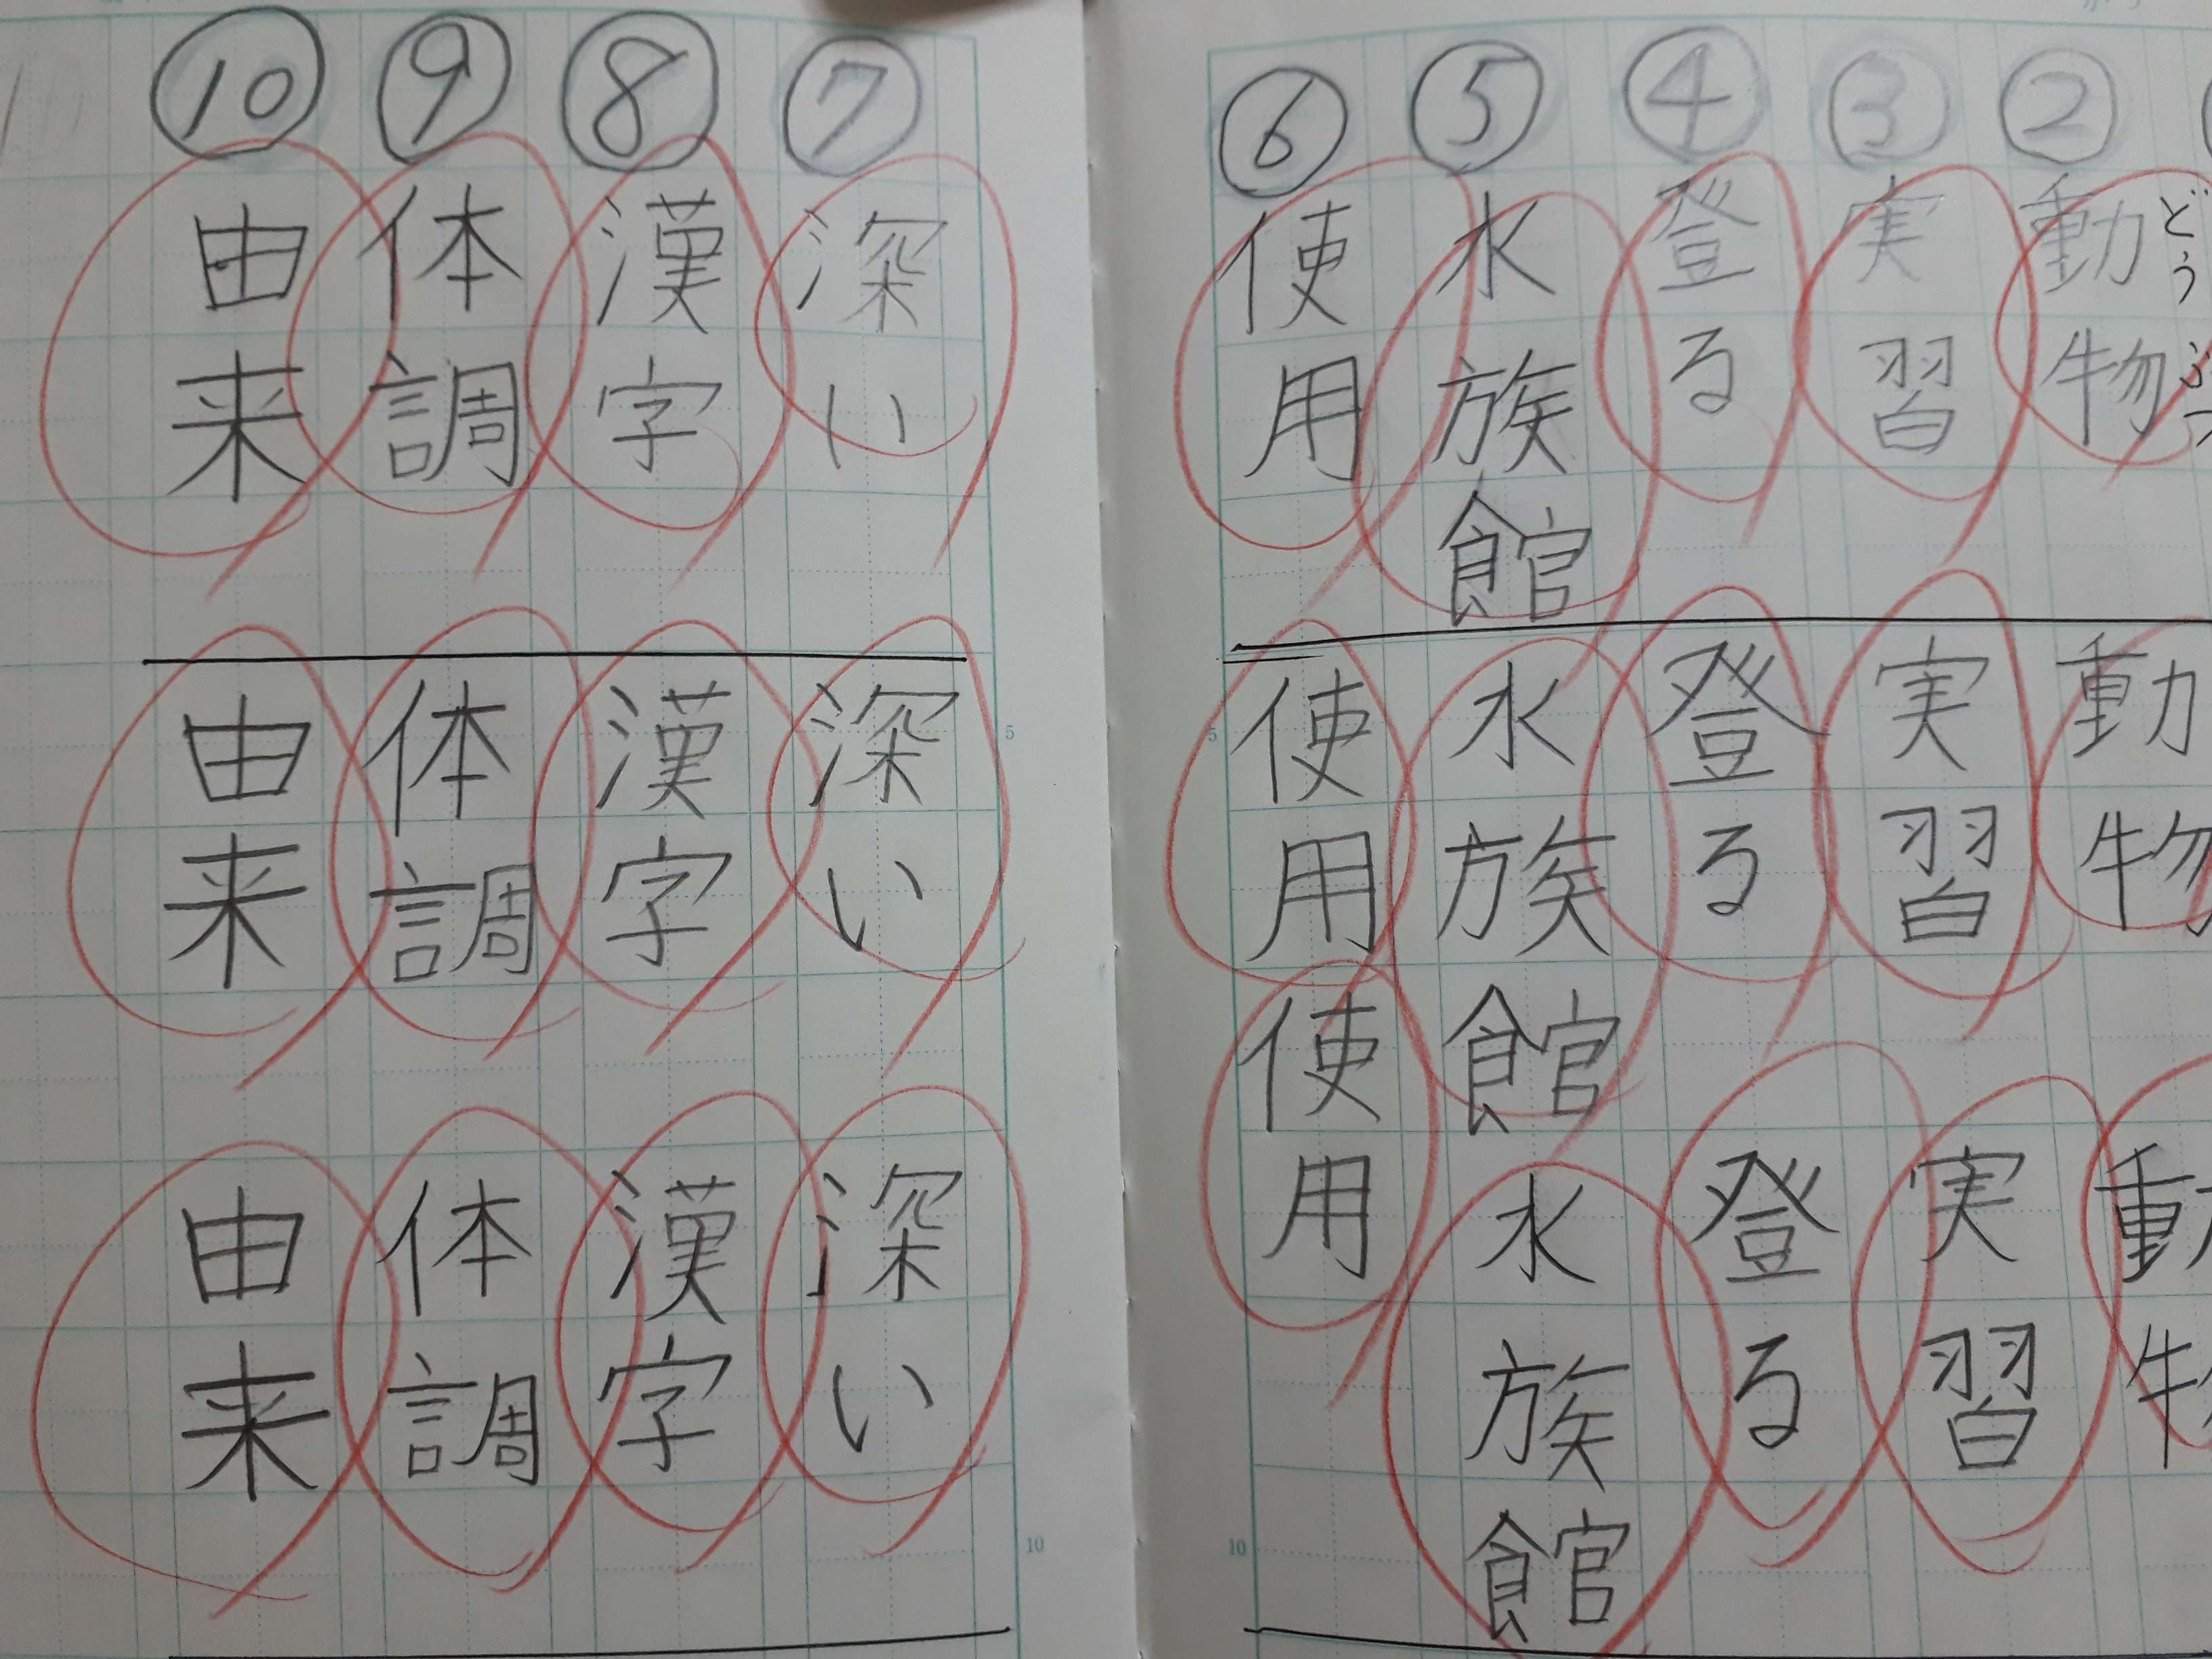 ②
動物
どうぶつ
動物
動物
③
実習
実習
実習
④
登る
登る
登る
⑤
水族館
水族館
水族館
⑥
使用
使用
使用
⑦
深い
深い
深い
⑧
漢字
漢字
漢字
⑨
体調
体調
体調
⑩
由来
由来
由来
5
10
5
10